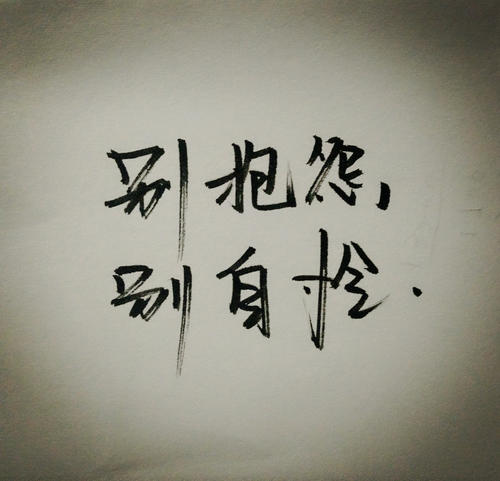 别抱怨,
别自怜.